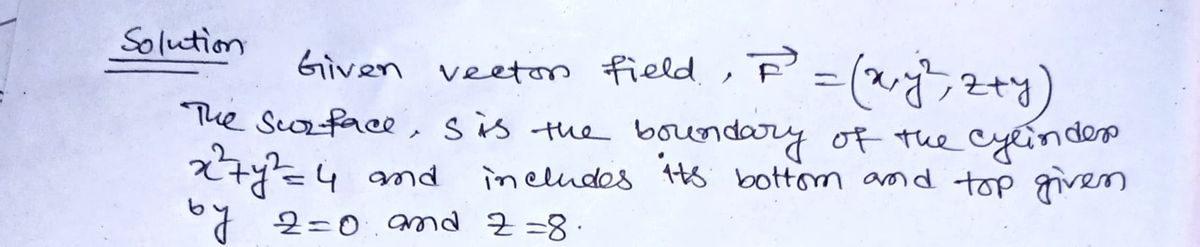 Solution
Given vector field, F⃗ = (x, y², z+y)
The surface, S is the boundary of the cylinder
x²+y²=4 and includes its bottom and top given
by z=0 and z=8.